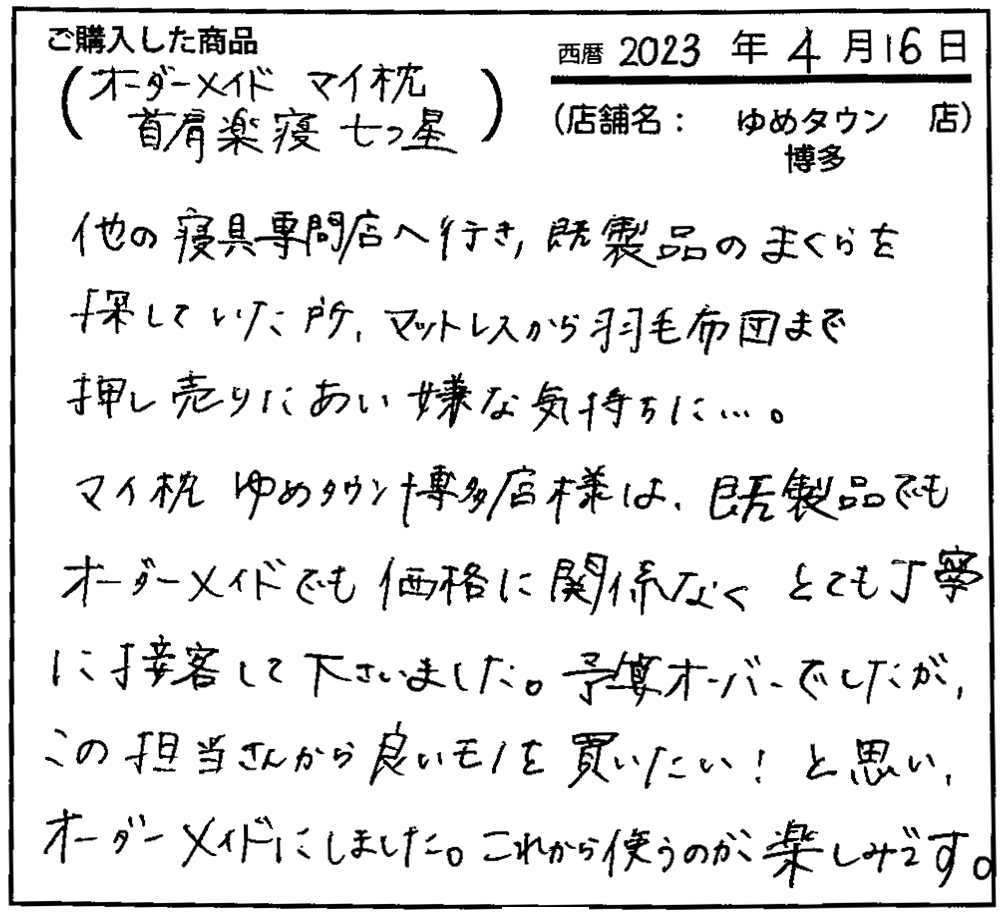 ご購入した商品
西暦 2023 年 4 月 16 日
(オーダーメイド マイ枕
首肩楽寝 七つ星)
(店舗名: ゆめタウン 店)
博多
他の寝具専門店へ行き,既製品のまくらを
探していた所、マットレスから羽毛布団まで
押し売りにあい嫌な気持ちに…。
マイ枕 ゆめタウン博多店様は、既製品でも
オーダーメイドでも価格に関係なくとても丁寧
に接客して下さいました。予算オーバーでしたが、
この担当さんから良いモノを買いたい!と思い、
オーダーメイドにしました。これから使うのが楽しみです。